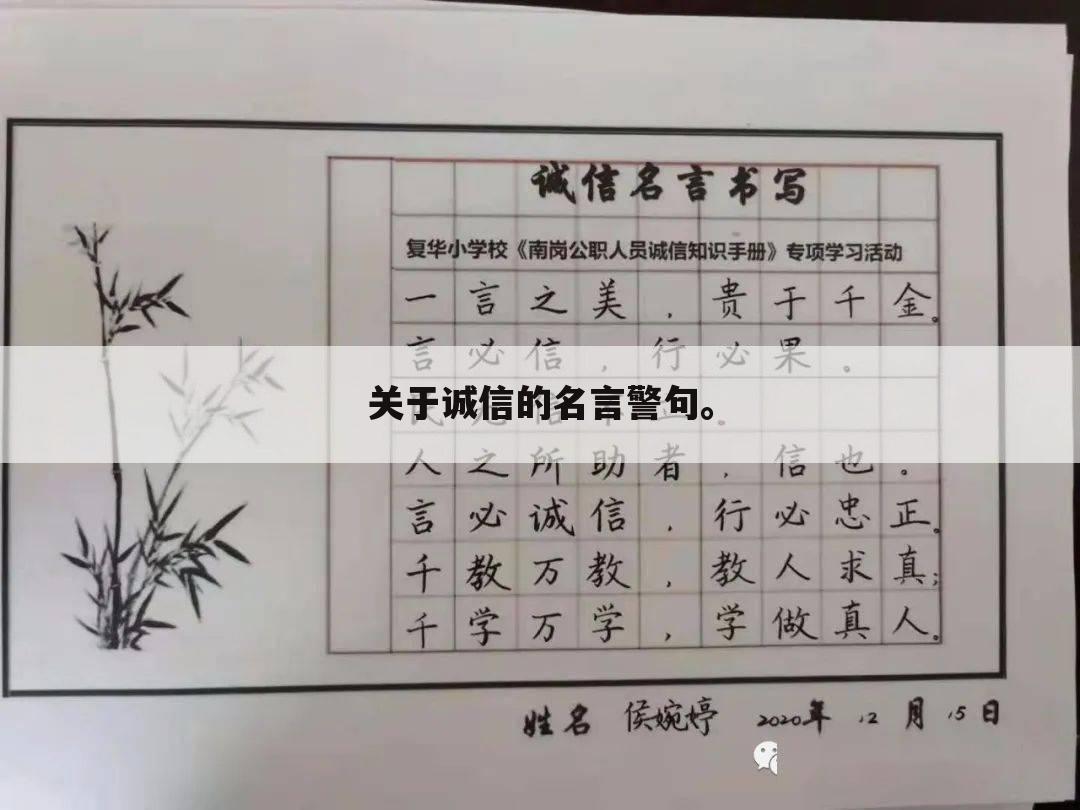 诚信名言书写
复华小学校《南岗公职人员诚信知识手册》专项学习活动
一言之美，贵于千金。
言必信，行必果。
关于诚信的名言警句。
人之所助者，信也。
言必诚信，行必忠正。
千教万教，教人求真；
千学万学，学做真人。
姓名 侯婉婷 2020年12月15日